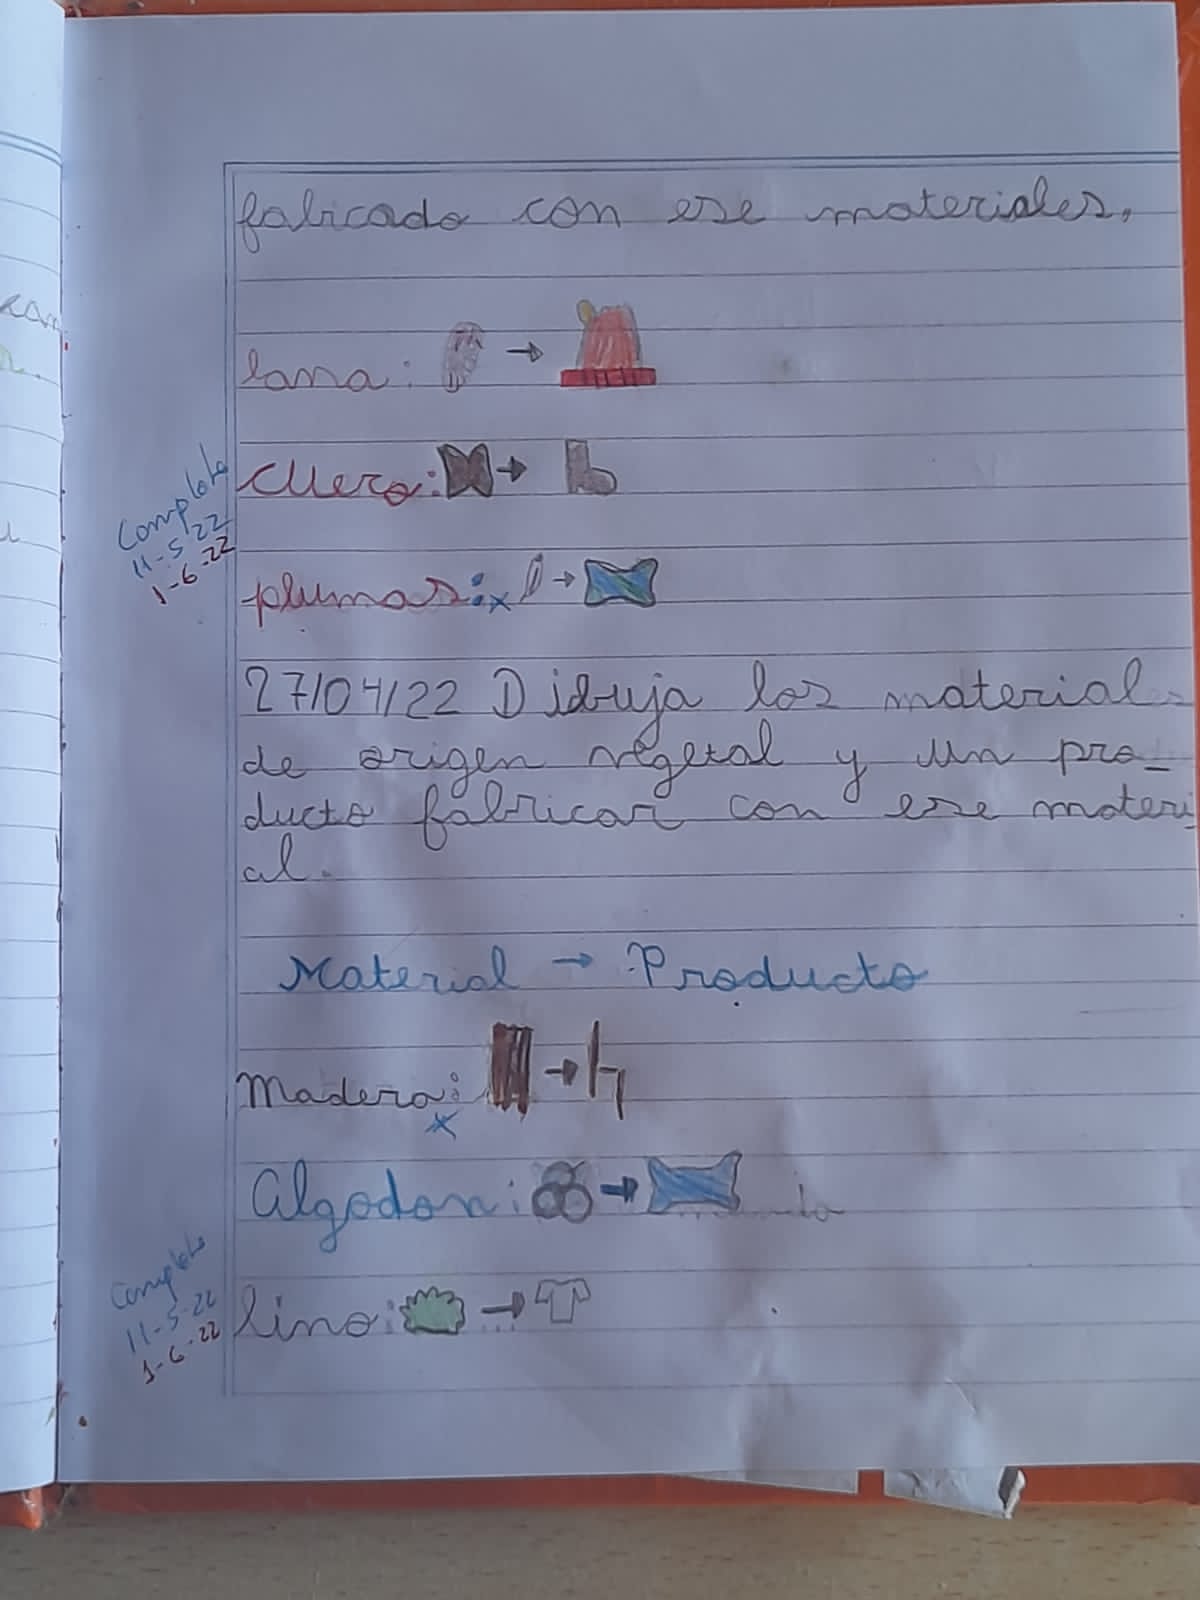 fabicado con ese materiales.
lana:
Cuero:
Completo
11-5-22
1-6-22
plumas:
27/04/22 Dibuja los materiales
de origen vegetal y un pro-
ducto fabricar con ese materi
al.
Material → Producto
Madera:
Algodon:
Completo
11-5-22
1-6-22
lino: